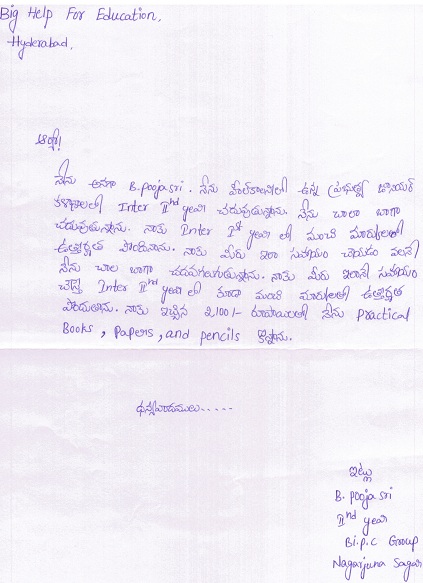 Big Help For Education,
Hyderabad.
ఆర్యా!
నేను అనగా B.pooja sri. నేను హిల్‌కాలనీలో ఉన్న ప్రభుత్వ జూనియర్
కళాశాలలో Inter IInd year చదువుతున్నాను. నేను చాలా బాగా
చదువుతున్నాను. నాకు Inter Ist year లో మంచి మార్కులతో
ఉత్తీర్ణత పొందినాను. నాకు మీరు ఇలా సహాయం చేయడం వలన
నేను చాల బాగా చదవగలుగుతున్నాను. నాకు మీరు ఇలానే సహాయం
చేస్తే Inter IInd year లో కూడా మంచి మార్కులతో ఉత్తీర్ణత
పొందుతాను. నాకు ఇచ్చిన 2,100/- రూపాయలతో నేను practical
Books, papers, and pencils కొన్నాను.
ధన్యవాదములు.....
ఇట్లు
B. pooja sri
IInd year
Bi.p.c Group
Nagarjuna Sagar